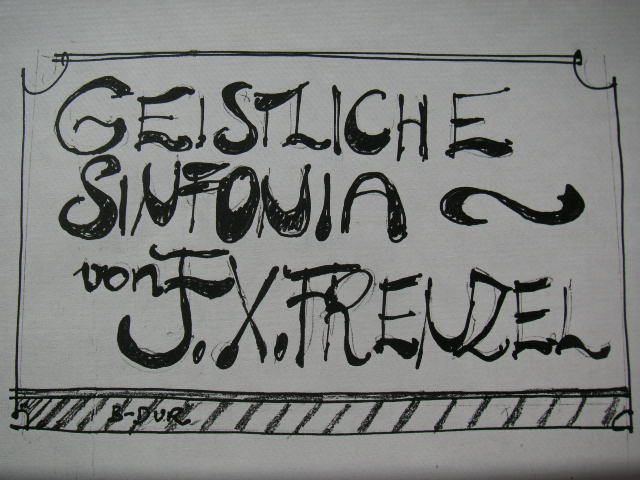 GEISTLICHE
SINFONIA ~
von J. X. FRENZEL
B-DUR